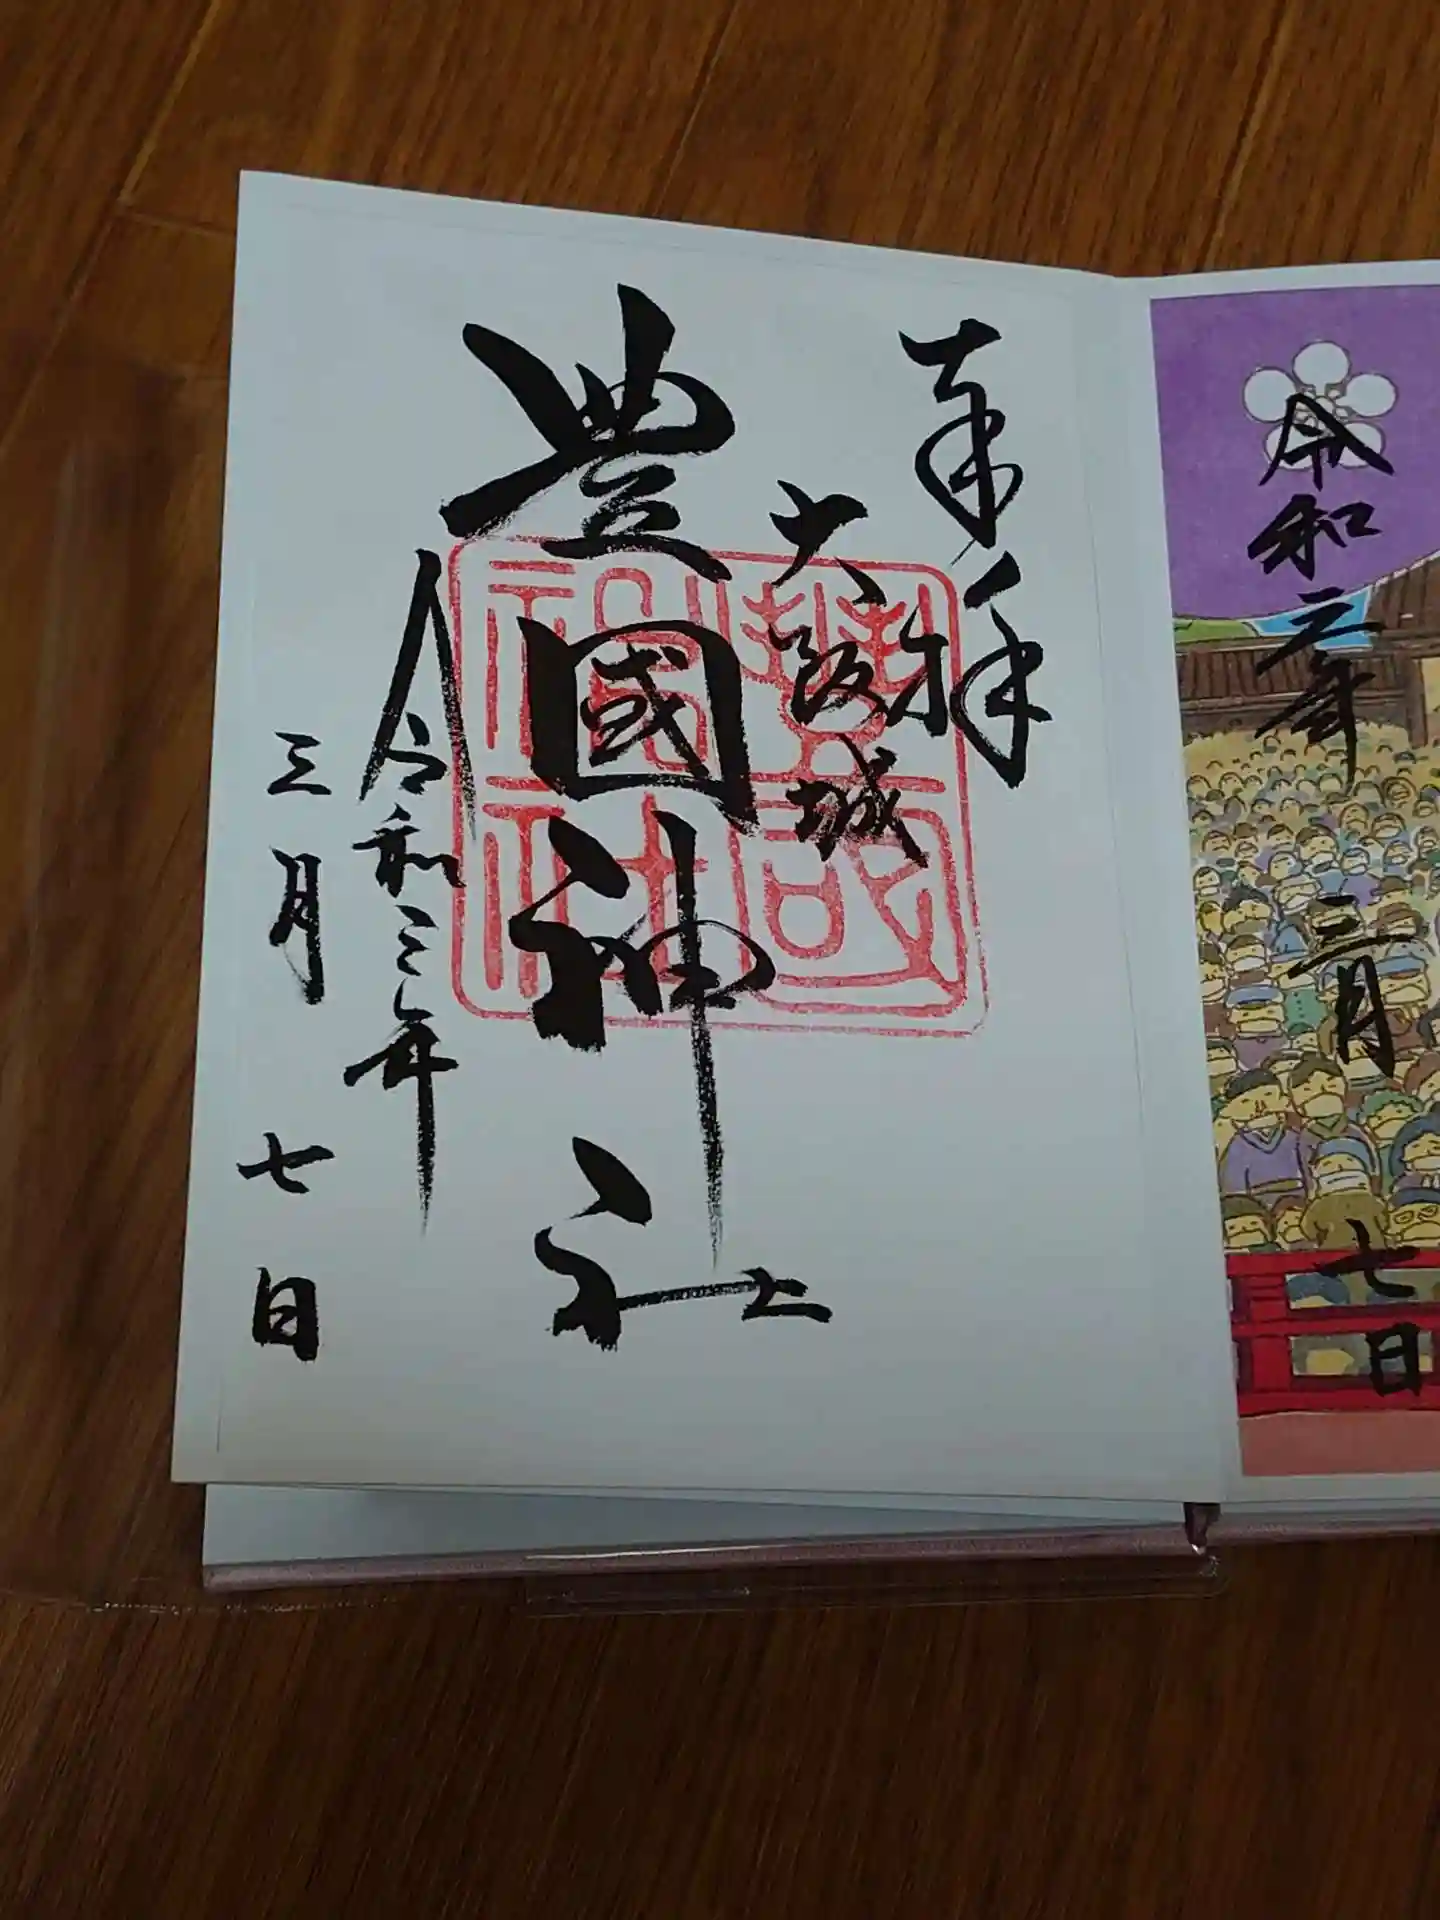 令和三年
三月
七日
奉拝
大阪城
豊國神社
豐國神社
令和三年
三月
七日